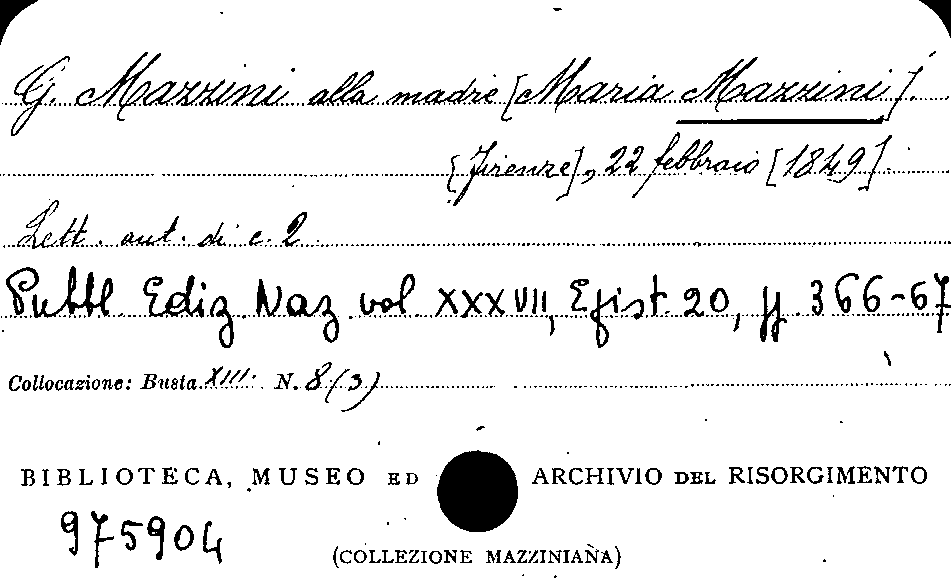 G. Mazzini alla madre [Maria Mazzini].
[Firenze], 22 febbraio [1849].
Lett. aut. di c. 2
Pubbl Ediz. Naz. vol XXXVII, Epist. 20, pp. 366-67
Collocazione: Busta XIII. N. 8 (3)
BIBLIOTECA, MUSEO ED ARCHIVIO DEL RISORGIMENTO
975904
(COLLEZIONE MAZZINIANA)